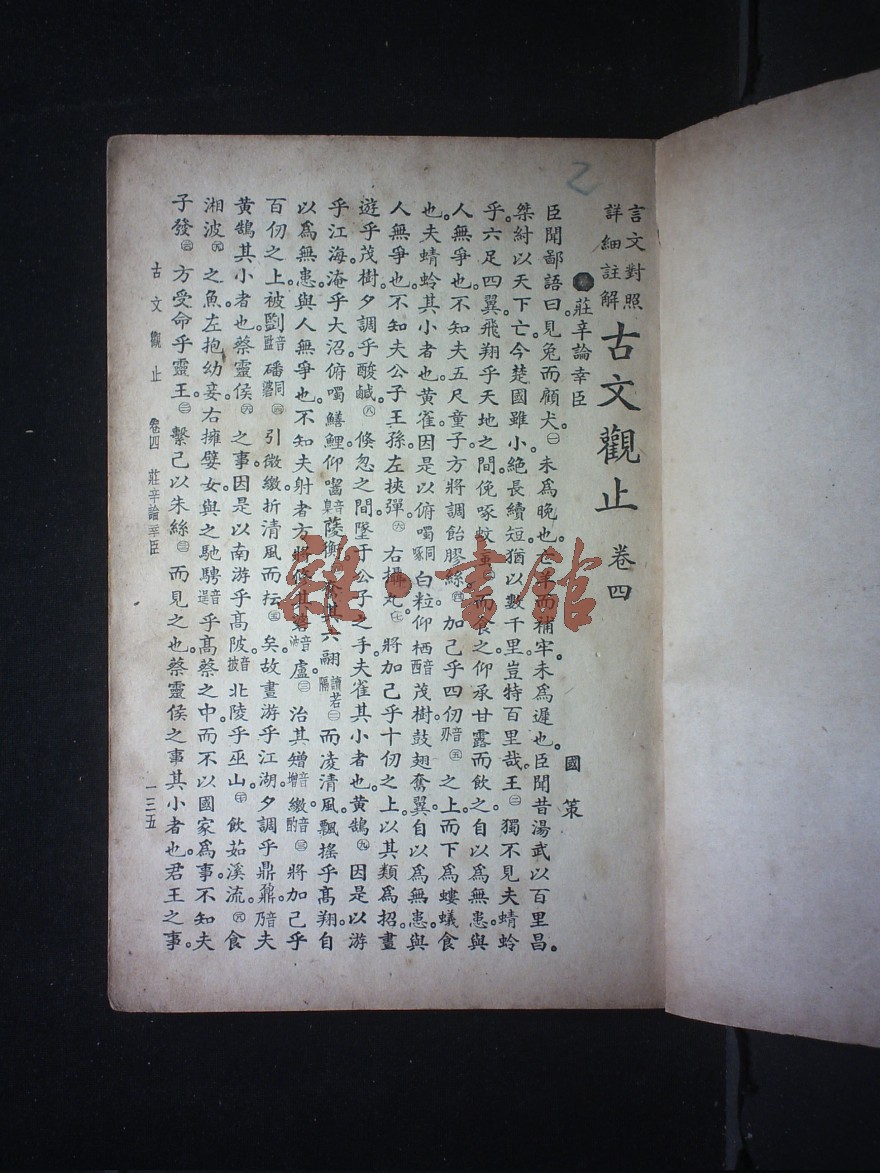 2
言文對照
詳細註解
古文觀止 卷四
莊辛論幸臣 國策
臣聞鄙語曰。見兔而顧犬。㊀未為晚也。亡羊而補牢。未為遲也。臣聞昔湯武以百里昌。
桀紂以天下亡。今楚國雖小。絕長續短。猶以數千里。豈特百里哉。王㊁獨不見夫蜻蛉
乎。六足四翼。飛翔乎天地之間。俛啄蚊䖟㊂而食之。仰承甘露而飲之。自以為無患。與
人無爭也。不知夫五尺童子。方將調飴膠絲。㊃加己乎四仞音刃㊄之上。而下為螻蟻食
也。夫蜻蛉其小者也。黃雀因是以俯噣同啄白粒。仰栖音西茂樹。鼓翅奮翼。自以為無患。與
人無爭也。不知夫公子王孫。左挾彈。㊅右攝丸。㊆將加己乎十仞之上。以其類為招。晝
遊乎茂樹。夕調乎酸鹹。㊇倏忽之間。墜于公子之手。夫雀其小者也。黃鵠㊈因是以游
乎江海。淹乎大沼。俯噣鱔鯉。仰囓音臬蔆衡。奮其六翮讀若隔㊀而凌清風。飄搖乎高翔。自
以為無患。與人無爭也。不知夫射者。方將修其䂮音㊁盧。治其矰音增繳音酌㊂將加己乎
百仞之上。被㔋音監磻同㊃引微繳。折清風而抎㊄矣。故晝游乎江湖。夕調乎鼎鼐音乃夫
黃鵠其小者也。蔡靈侯㊅之事。因是以南游乎高陂音披北陵乎巫山。飲茹溪流。食
湘波之魚。左抱幼妾。右擁嬖女。與之馳騁音逞乎高蔡之中。而不以國家為事。不知夫
子發方受命乎靈王。繫己以朱絲而見之也。蔡靈侯之事。其小者也。君王之事。
古文觀止 卷四 莊辛論幸臣 一三五
雜·書館